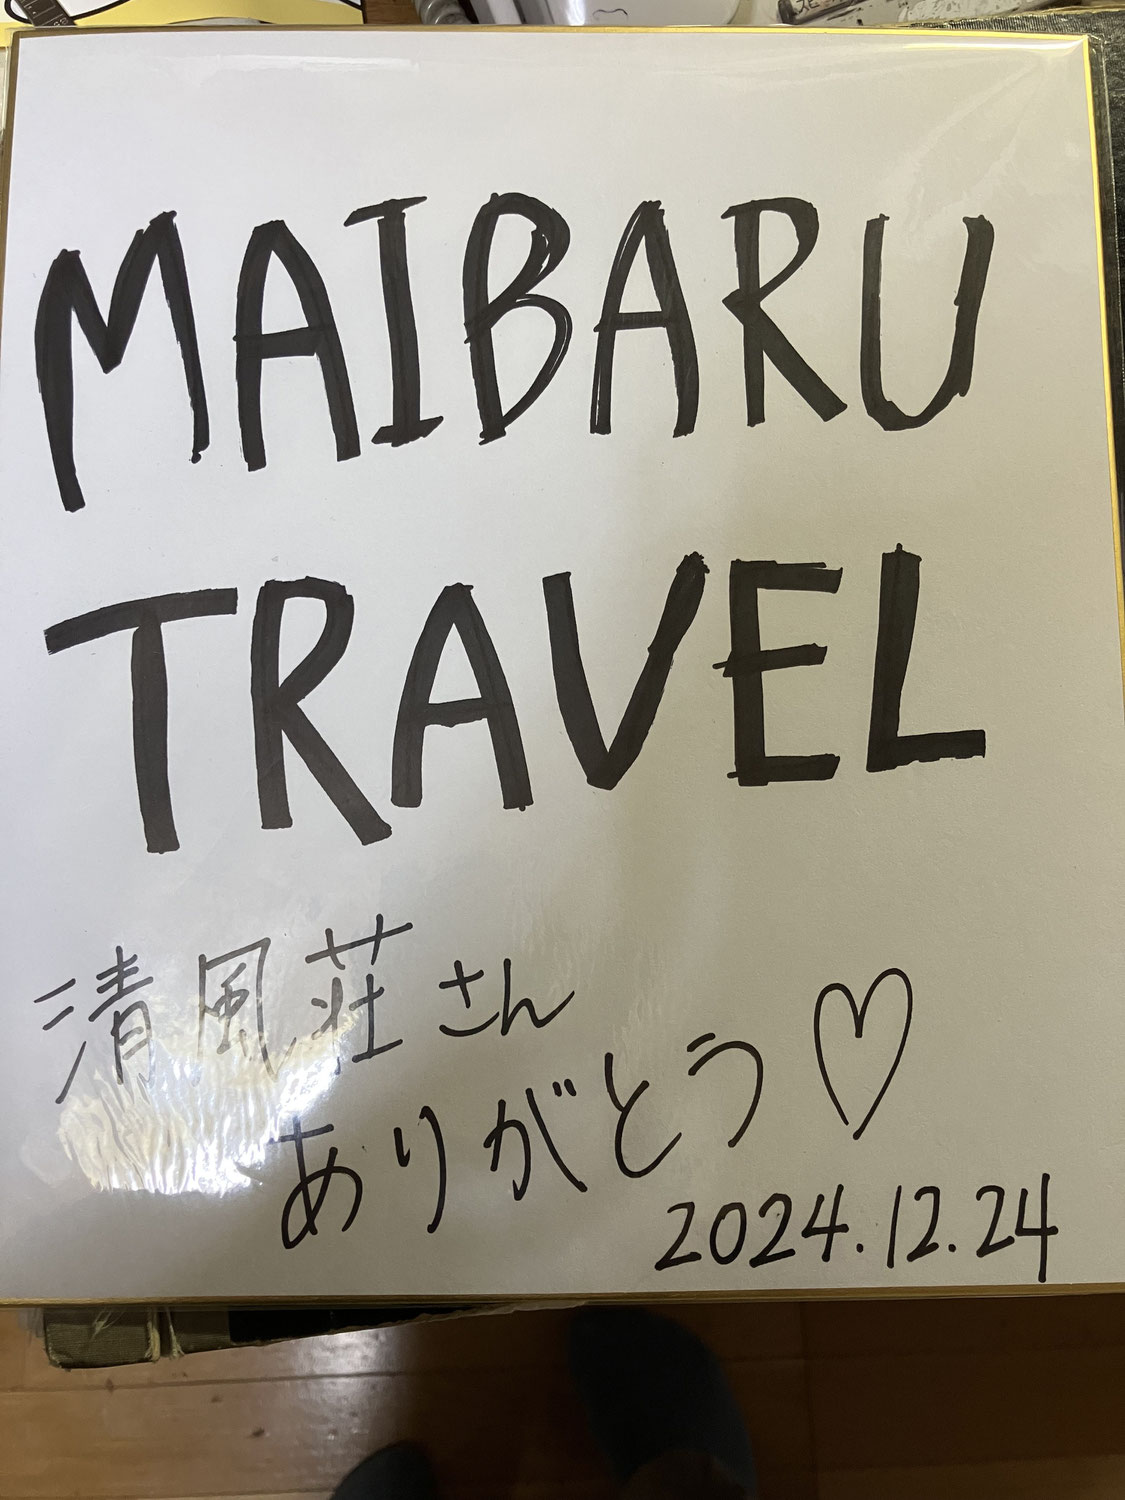 MAIBARU
TRAVEL
清風荘さん
ありがとう♡
2024.12.24